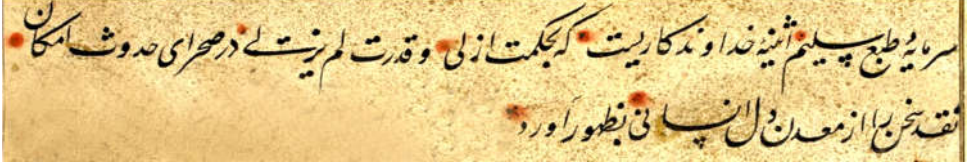 سرمایهٔ طبع سلیم اثنیه خداوند کاریست که بحکمت ازلی و قدرت لم یزلی در صحرای حدوث امکان
نقد سخن را از معدن دل انسانی بظهور آورد